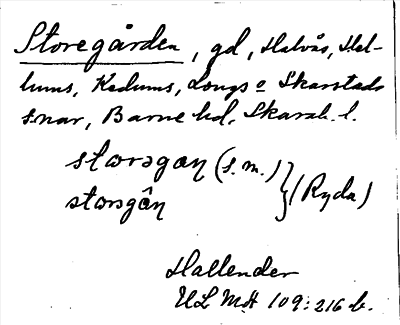 Storegården, gd, Halvås, Hal-
lums, Kedums, Longs o Skarstads
snar, Barne hd, Skarab. l.
storəgan (s.m.) } (Ryda)
storsgân
Hallender
ULMA 109:216 b.